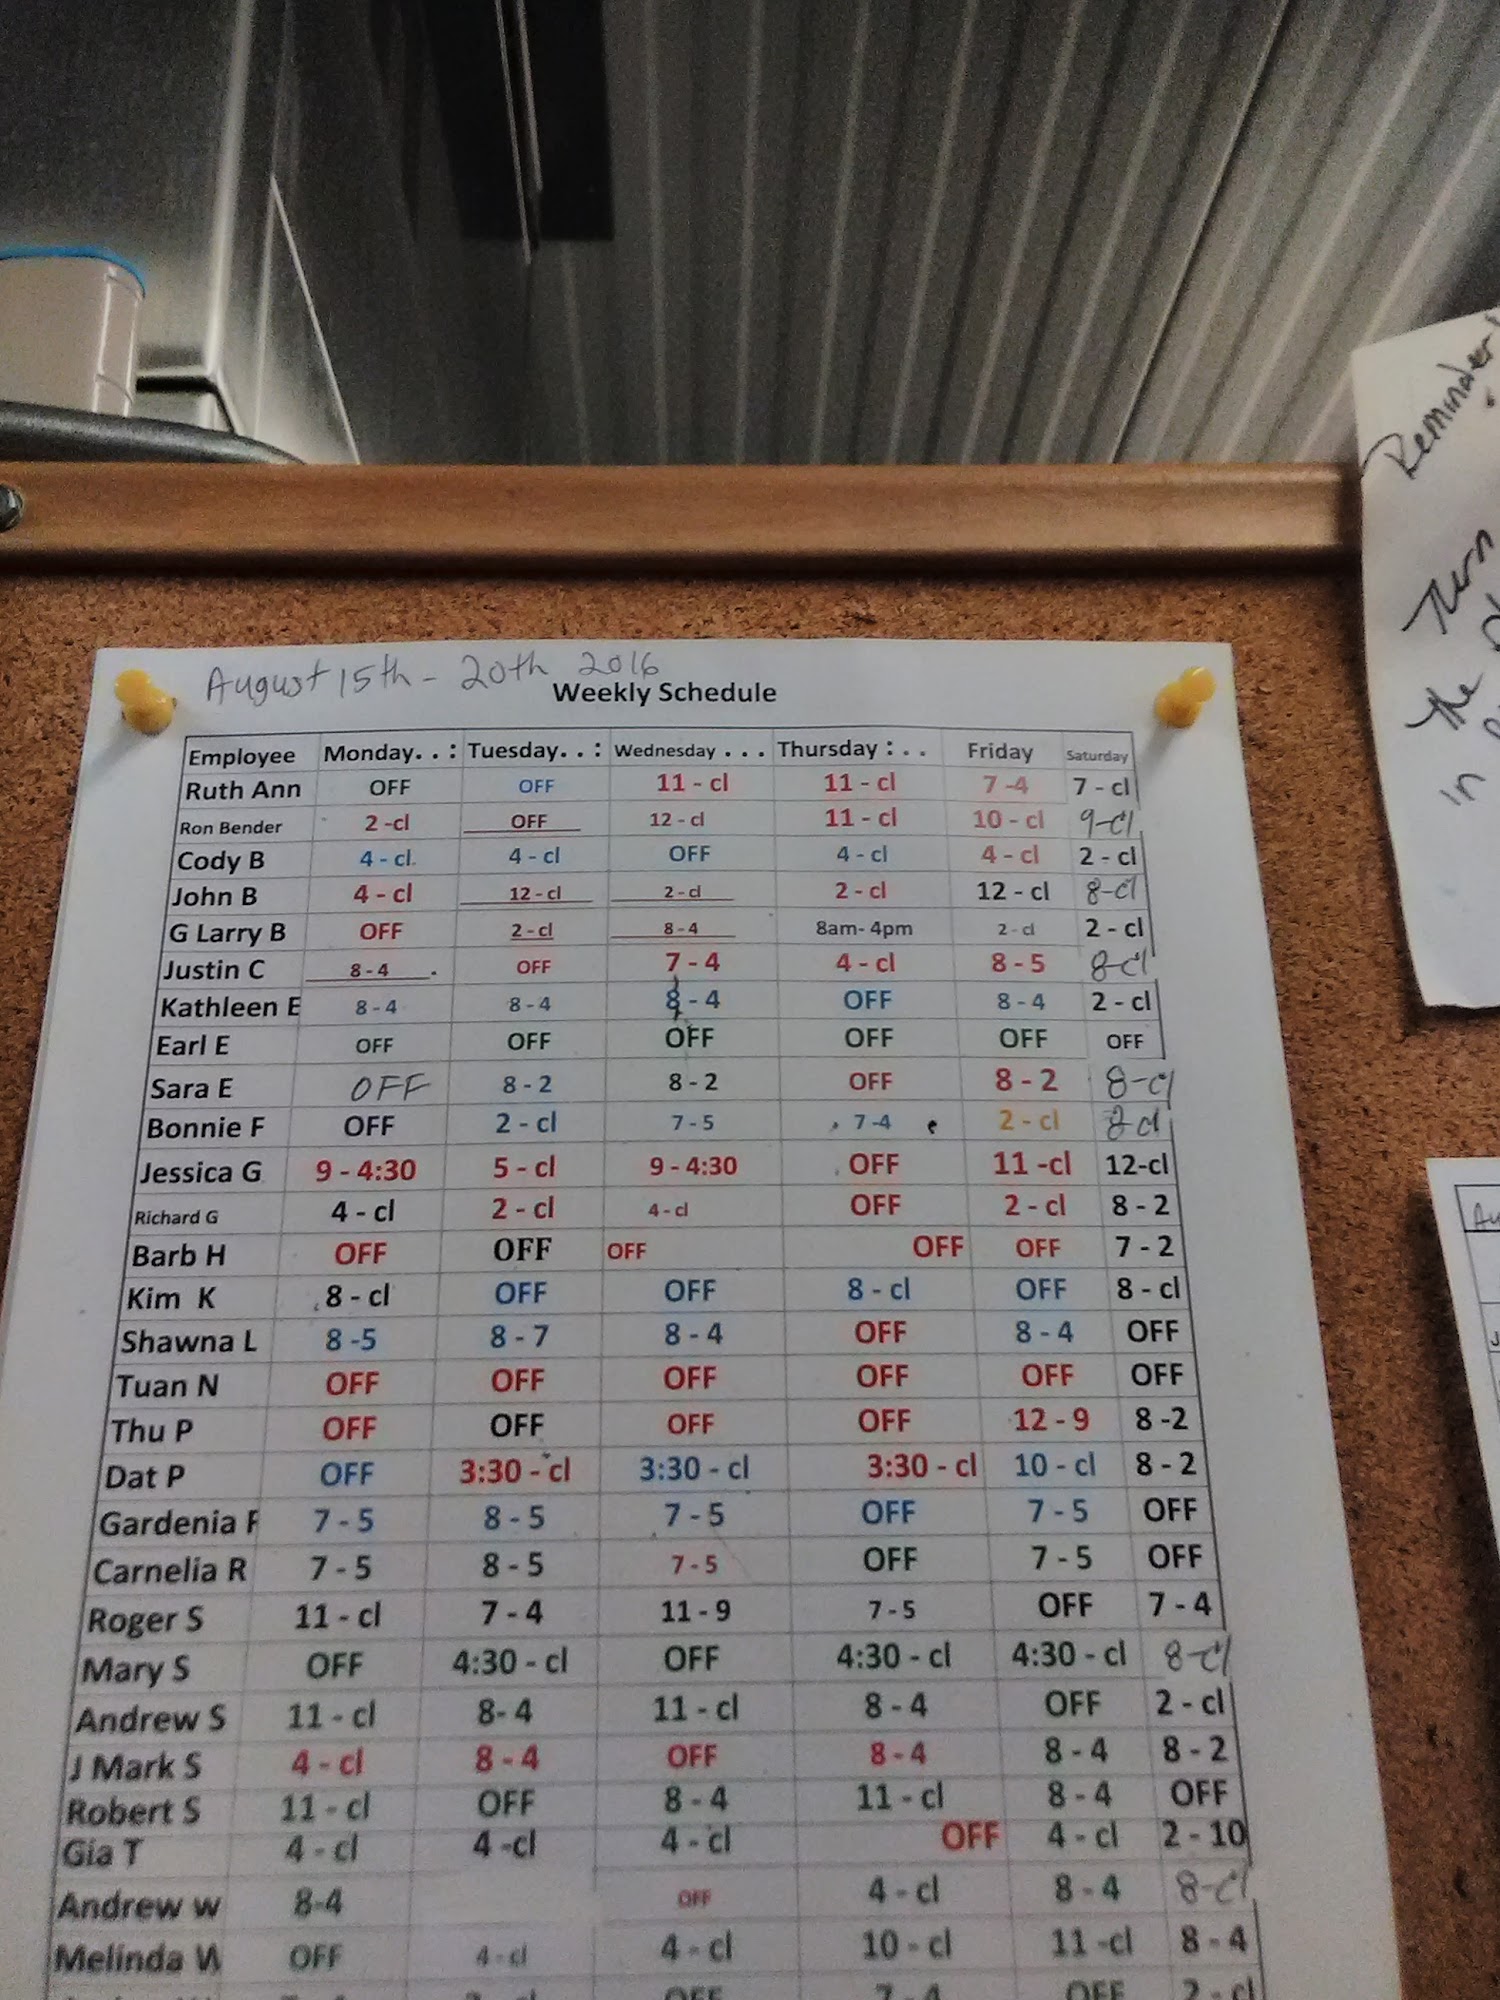 Reminder!
Turn
the
in
August 15th - 20th 2016
Weekly Schedule
Employee Monday. . : Tuesday. . : Wednesday . . . Thursday : . . Friday Saturday
Ruth Ann OFF OFF 11 - cl 11 - cl 7 -4 7 - cl
Ron Bender 2 -cl OFF 12 - cl 11 - cl 10 - cl 9-cl
Cody B 4 - cl. 4 - cl OFF 4 - cl 4 - cl 2 - cl
John B 4 - cl 12 - cl 2 - cl 2 - cl 12 - cl 8-cl
G Larry B OFF 2 - cl 8 - 4 8am- 4pm 2 - cl 2 - cl
Justin C 8 - 4 OFF 7 - 4 4 - cl 8 - 5 8-cl
Kathleen E 8 - 4 8 - 4 8 - 4 OFF 8 - 4 2 - cl
Earl E OFF OFF OFF OFF OFF OFF
Sara E OFF 8 - 2 8 - 2 OFF 8 - 2 8-cl
Bonnie F OFF 2 - cl 7 - 5 7 -4 2 - cl 8cl
Jessica G 9 - 4:30 5 - cl 9 - 4:30 OFF 11 -cl 12-cl
Richard G 4 - cl 2 - cl 4 - cl OFF 2 - cl 8 - 2
Barb H OFF OFF OFF OFF OFF 7 - 2
Kim K 8 - cl OFF OFF 8 - cl OFF 8 - cl
Shawna L 8 -5 8 - 7 8 - 4 OFF 8 - 4 OFF
Tuan N OFF OFF OFF OFF OFF OFF
Thu P OFF OFF OFF OFF 12 - 9 8 -2
Dat P OFF 3:30 - cl 3:30 - cl 3:30 - cl 10 - cl 8 - 2
Gardenia 7 - 5 8 - 5 7 - 5 OFF 7 - 5 OFF
Carnelia R 7 - 5 8 - 5 7 - 5 OFF 7 - 5 OFF
Roger S 11 - cl 7 - 4 11 - 9 7 - 5 OFF 7 - 4
Mary S OFF 4:30 - cl OFF 4:30 - cl 4:30 - cl 8-cl
Andrew S 11 - cl 8- 4 11 - cl 8 - 4 OFF 2 - cl
J Mark S 4 - cl 8 - 4 OFF 8 - 4 8 - 4 8 - 2
Robert S 11 - cl OFF 8 - 4 11 - cl 8 - 4 OFF
Gia T 4 - cl 4 -cl 4 - cl OFF 4 - cl 2 - 10
Andrew w 8-4 OFF 4 - cl 8 - 4 8-cl
Melinda W OFF 4 - cl 4 - cl 10 - cl 11 -cl 8 - 4
OFF 7 - 4 OFF 2 - cl